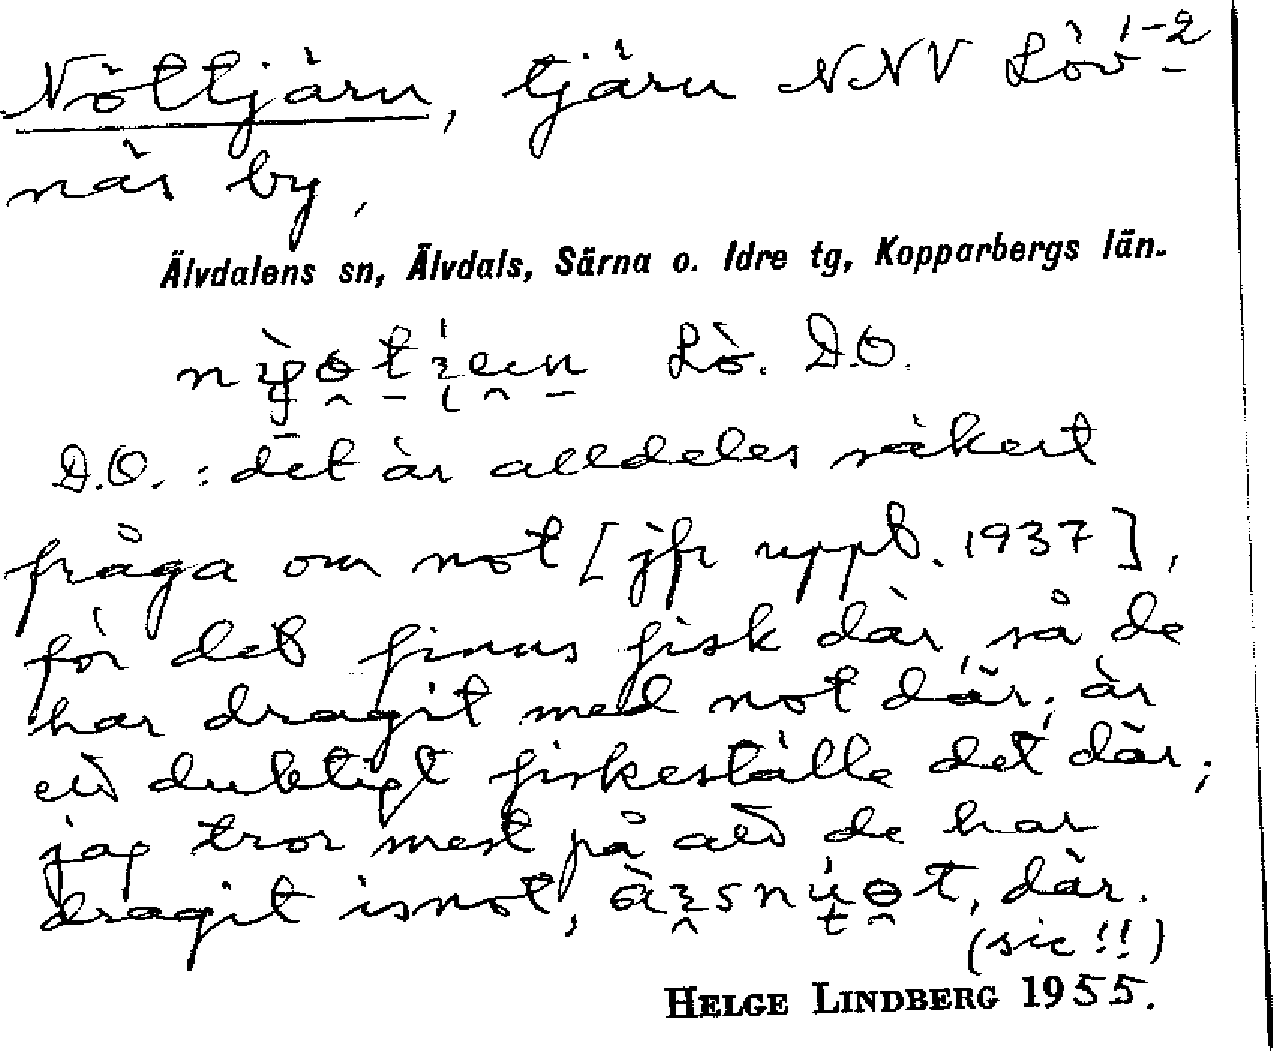 Nöttjärn, tjärn NNV Löv- 1-2
näs by,
Älvdalens sn, Älvdals, Särna o. Idre tg, Kopparbergs län.
Lö. D.O.
D.O. : det är alldeles säkert
fråga om not [jfr uppt. 1937],
för det finns fisk där så de
har dragit med not där; är
duktigt fiskeställe det där;
jag tror mest på att de har
dragit isnot, där.
(sic!!)
HELGE LINDBERG 1955.